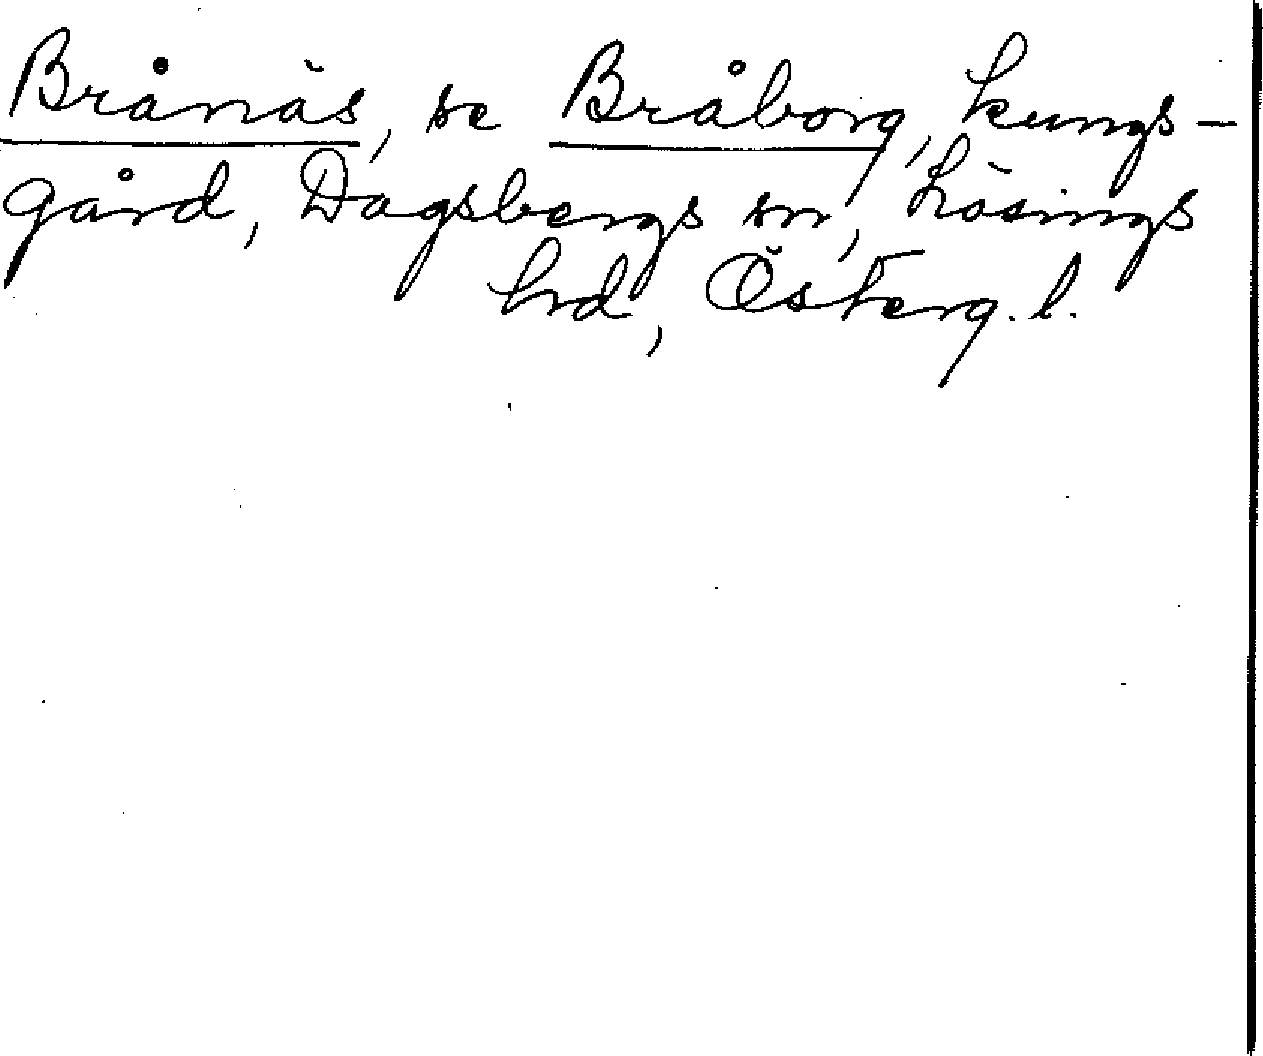 Brånäs, se Bråborg, kungs-
gård, Dagsbergs sn, Lösings
hd, Österg. l.